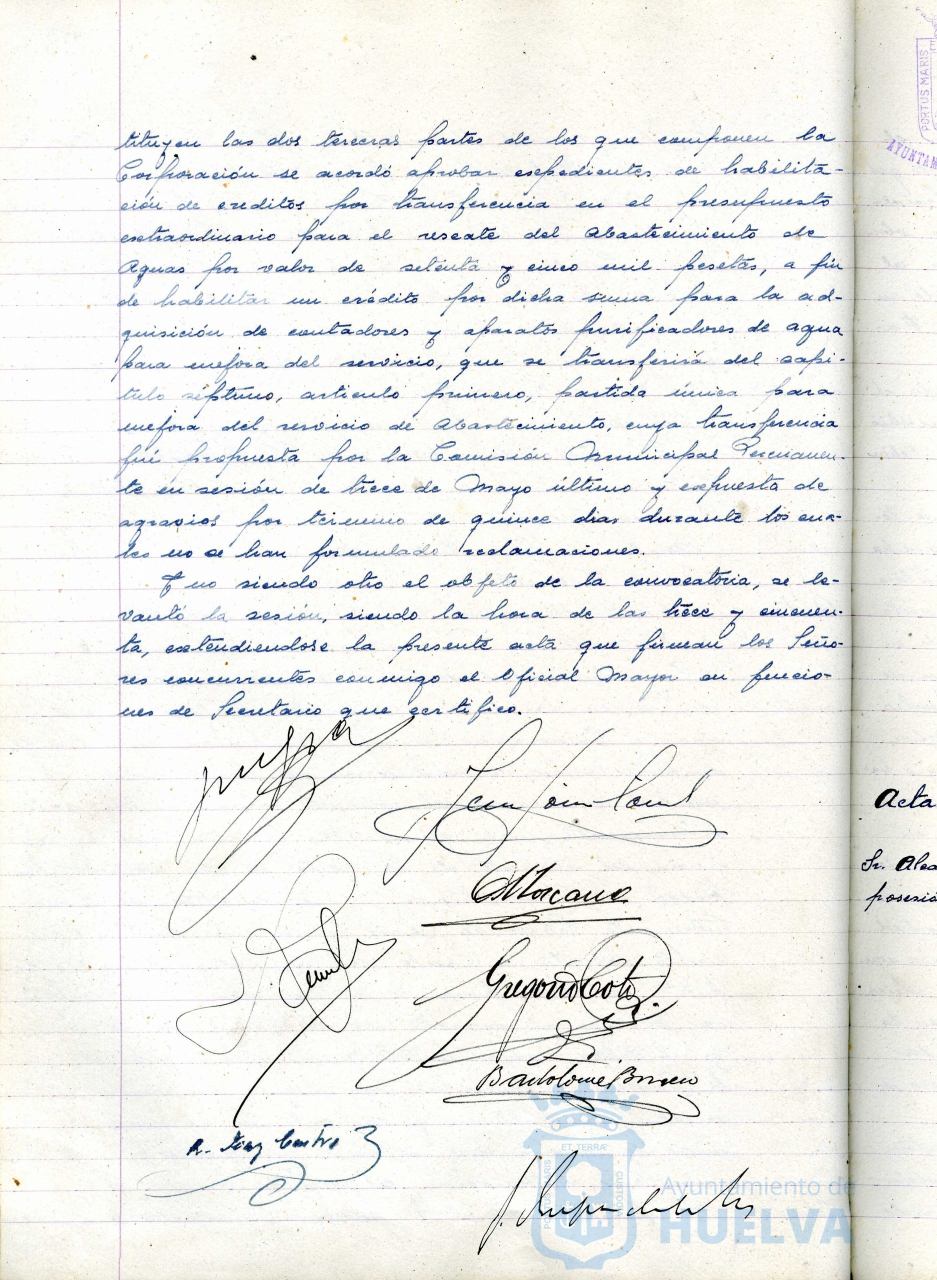 tituyen las dos terceras partes de los que componen la
Corporación se acordó aprobar espedientes de habilita-
ción de creditos por transferencia en el presupuesto
extraordinario para el rescate del Abastecimiento de
Aguas por valor de setenta y cinco mil pesetas, a fin
de habilitar un crédito por dicha suma para la ad-
quisición de contadores y aparatos purificadores de agua
para mejora del servicio, que se transferirá del capi-
tulo séptimo, articulo primero, partida única para
mejora del servicio de Abastecimiento, cuya transferencia
fué propuesta por la Comisión Municipal Permanen-
te en sesión de trece de Mayo último y expuesta de
agravios por termino de quince dias durante los cua-
les no se han formulado reclamaciones.
Y no siendo otro el objeto de la convocatoria, se le-
vantó la sesión, siendo la hora de las trece y cincuen-
ta, extendiendose la presente acta que firman los Seño-
res concurrentes conmigo el Oficial Mayor en funcio-
nes de Secretario que certifico.
Gregorio Coto
Bartolomé Borrero
R. Diaz Castro
Ayuntamiento de
HUELVA
ET TERRAE
CUSTODIA
PORTUS MARIS
PORTUS MARIS
AYUNTAM
Acta
Sr. Alca
posesió